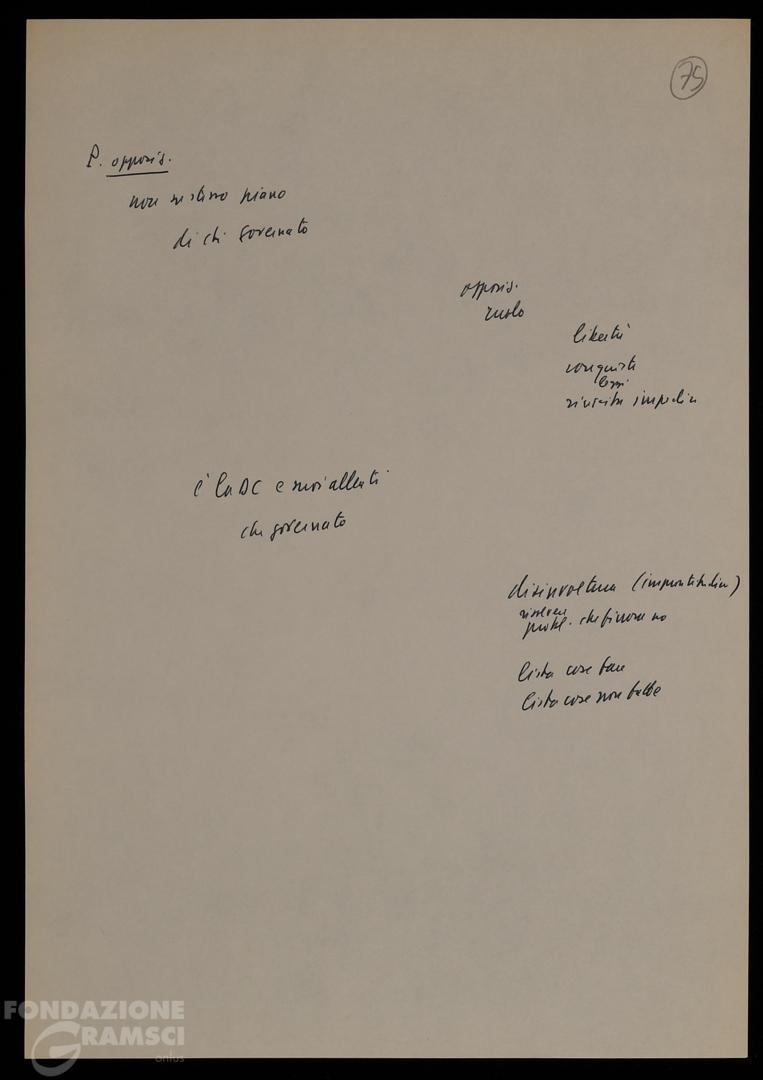 75
P. opposiz.
non su stesso piano
di chi governato
opposiz.
ruolo
libertà
conquiste
leggi
rinascita impedire
è la DC e suoi alleati
che governato
disinvoltura (improntitudine)
risolvere
probl. che finora no
lista cose fare
lista cose non fatte
FONDAZIONE
GRAMSCI
onlus